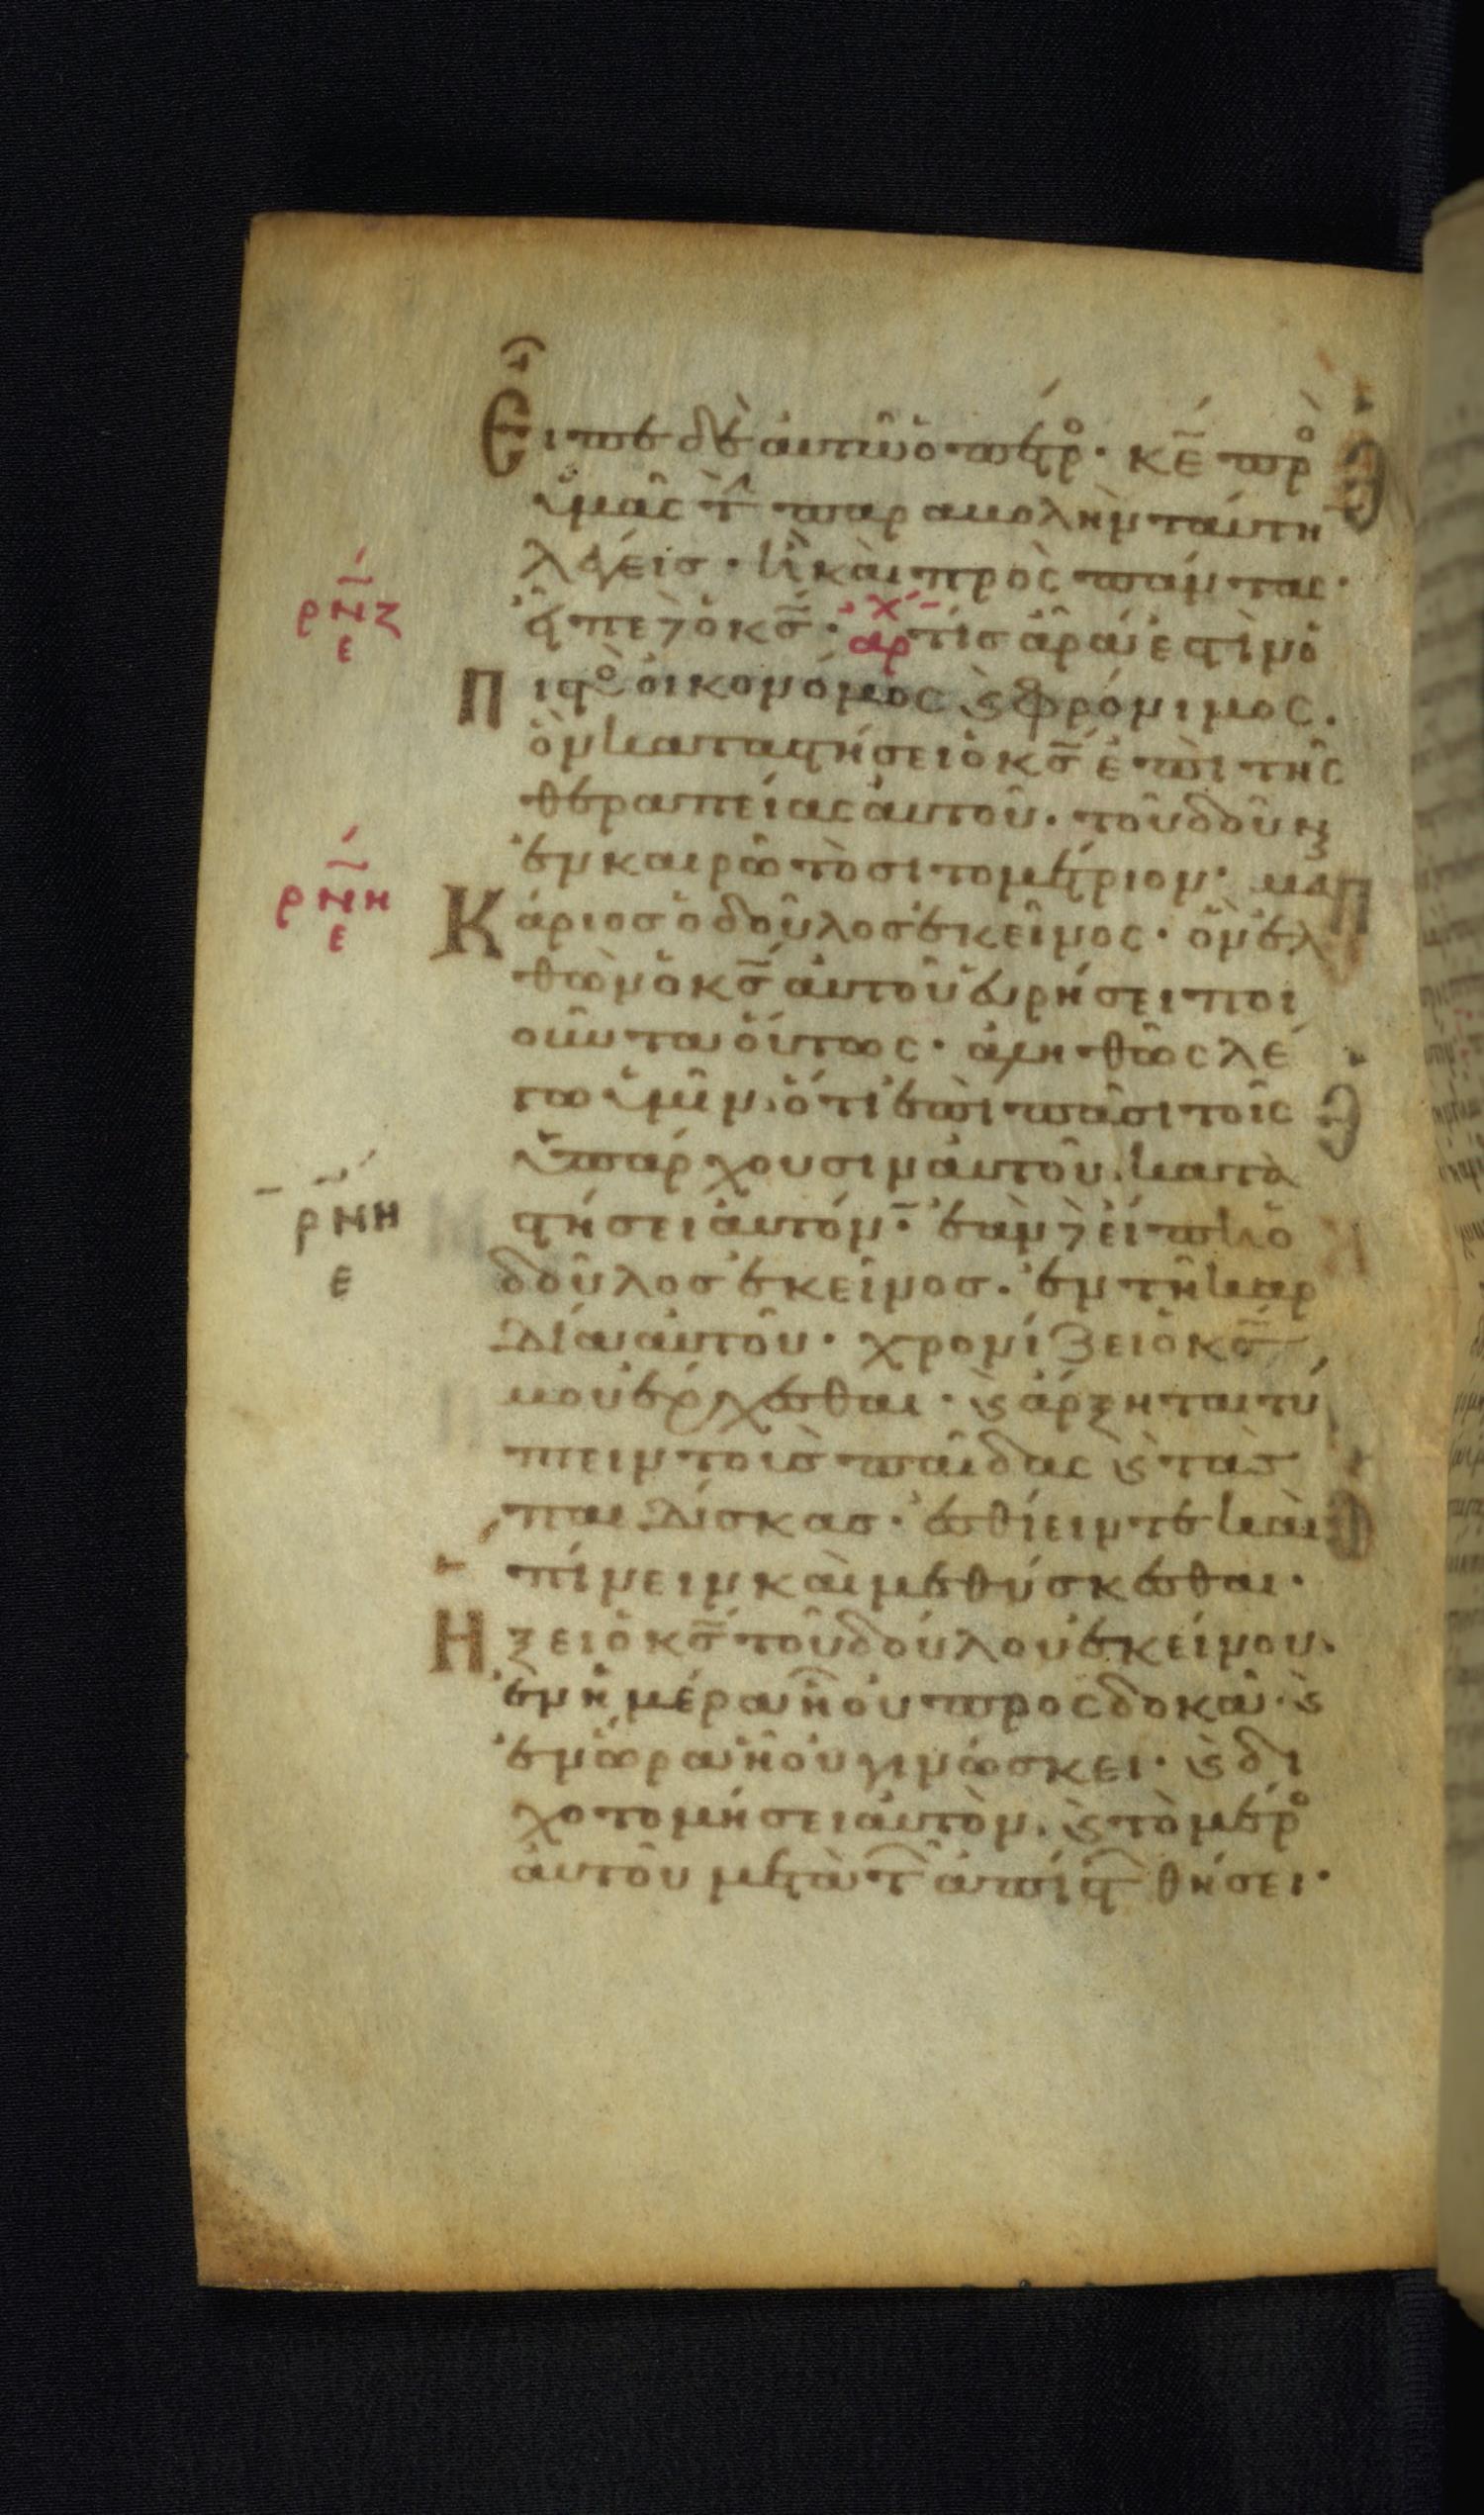 Εἶπε δὲ αὐτῶ ὁ πέτρ̊· κ̅ε̅ πρ̊
ὑμᾶς τ̂ παραβολὴν ταύτη
λέγεις· ἢ καὶ πρὸς πάντας·
ρνζ
ε
εἶπε δ ὁ κ̅ς̅· αρχ τίσ ἄρα ἐστὶν ὁ
Πιστ̊ οἰκονόμος ϗ φρόνιμος.
ὃν καταστήσει ὁ κ̅ς̅ ἐπὶ τῆς
θεραπείας αὐτοῦ. τοῦ δοῦναι
ἐν καιρῶ τὸ σιτομέτριον· μα
ρνη
ε
Κάριοσ ὁ δοῦλοσ ἐκεῖνος· ὃν ἐλ
θὼν ὁ κ̅ς̅ αὐτοῦ εὑρήσει ποι
οῦντα οὕτως· ἀληθῶς λέ
γω ὑμῖν. ὅτι ἐπὶ πᾶσι τοῖς
ὑπάρχουσιν αὐτοῦ. κατα
ρνη
ε
στήσει αὐτόν· ἐὰν δ εἴπη ὁ
δοῦλοσ ἐκεῖνοσ. ἐν τῆ καρ
δία αὐτοῦ· χρονίζει ὁ κ̅ς̅
μου ἔρχεσθαι· ϗ ἄρξηται τύ
πτειν τοὺσ παῖδας ϗ τὰσ
παιδίσκασ· ἐσθίειν τε καὶ
πίνειν καὶ μεθύσκεσθαι·
Ηξει ὁ κ̅ς̅ τοῦ δούλου ἐκείνου.
ἐν ἡμέρα ἧ οὐ προςδοκᾶ· ϗ
ἐν ὥρα ἧ οὐ γινώσκει· ϗ δι
χοτομήσει αὐτὸν. ϗ τὸ μέρ̊
αὐτοῦ μετὰ τ̂ ἀπίστ̂ θήσει·